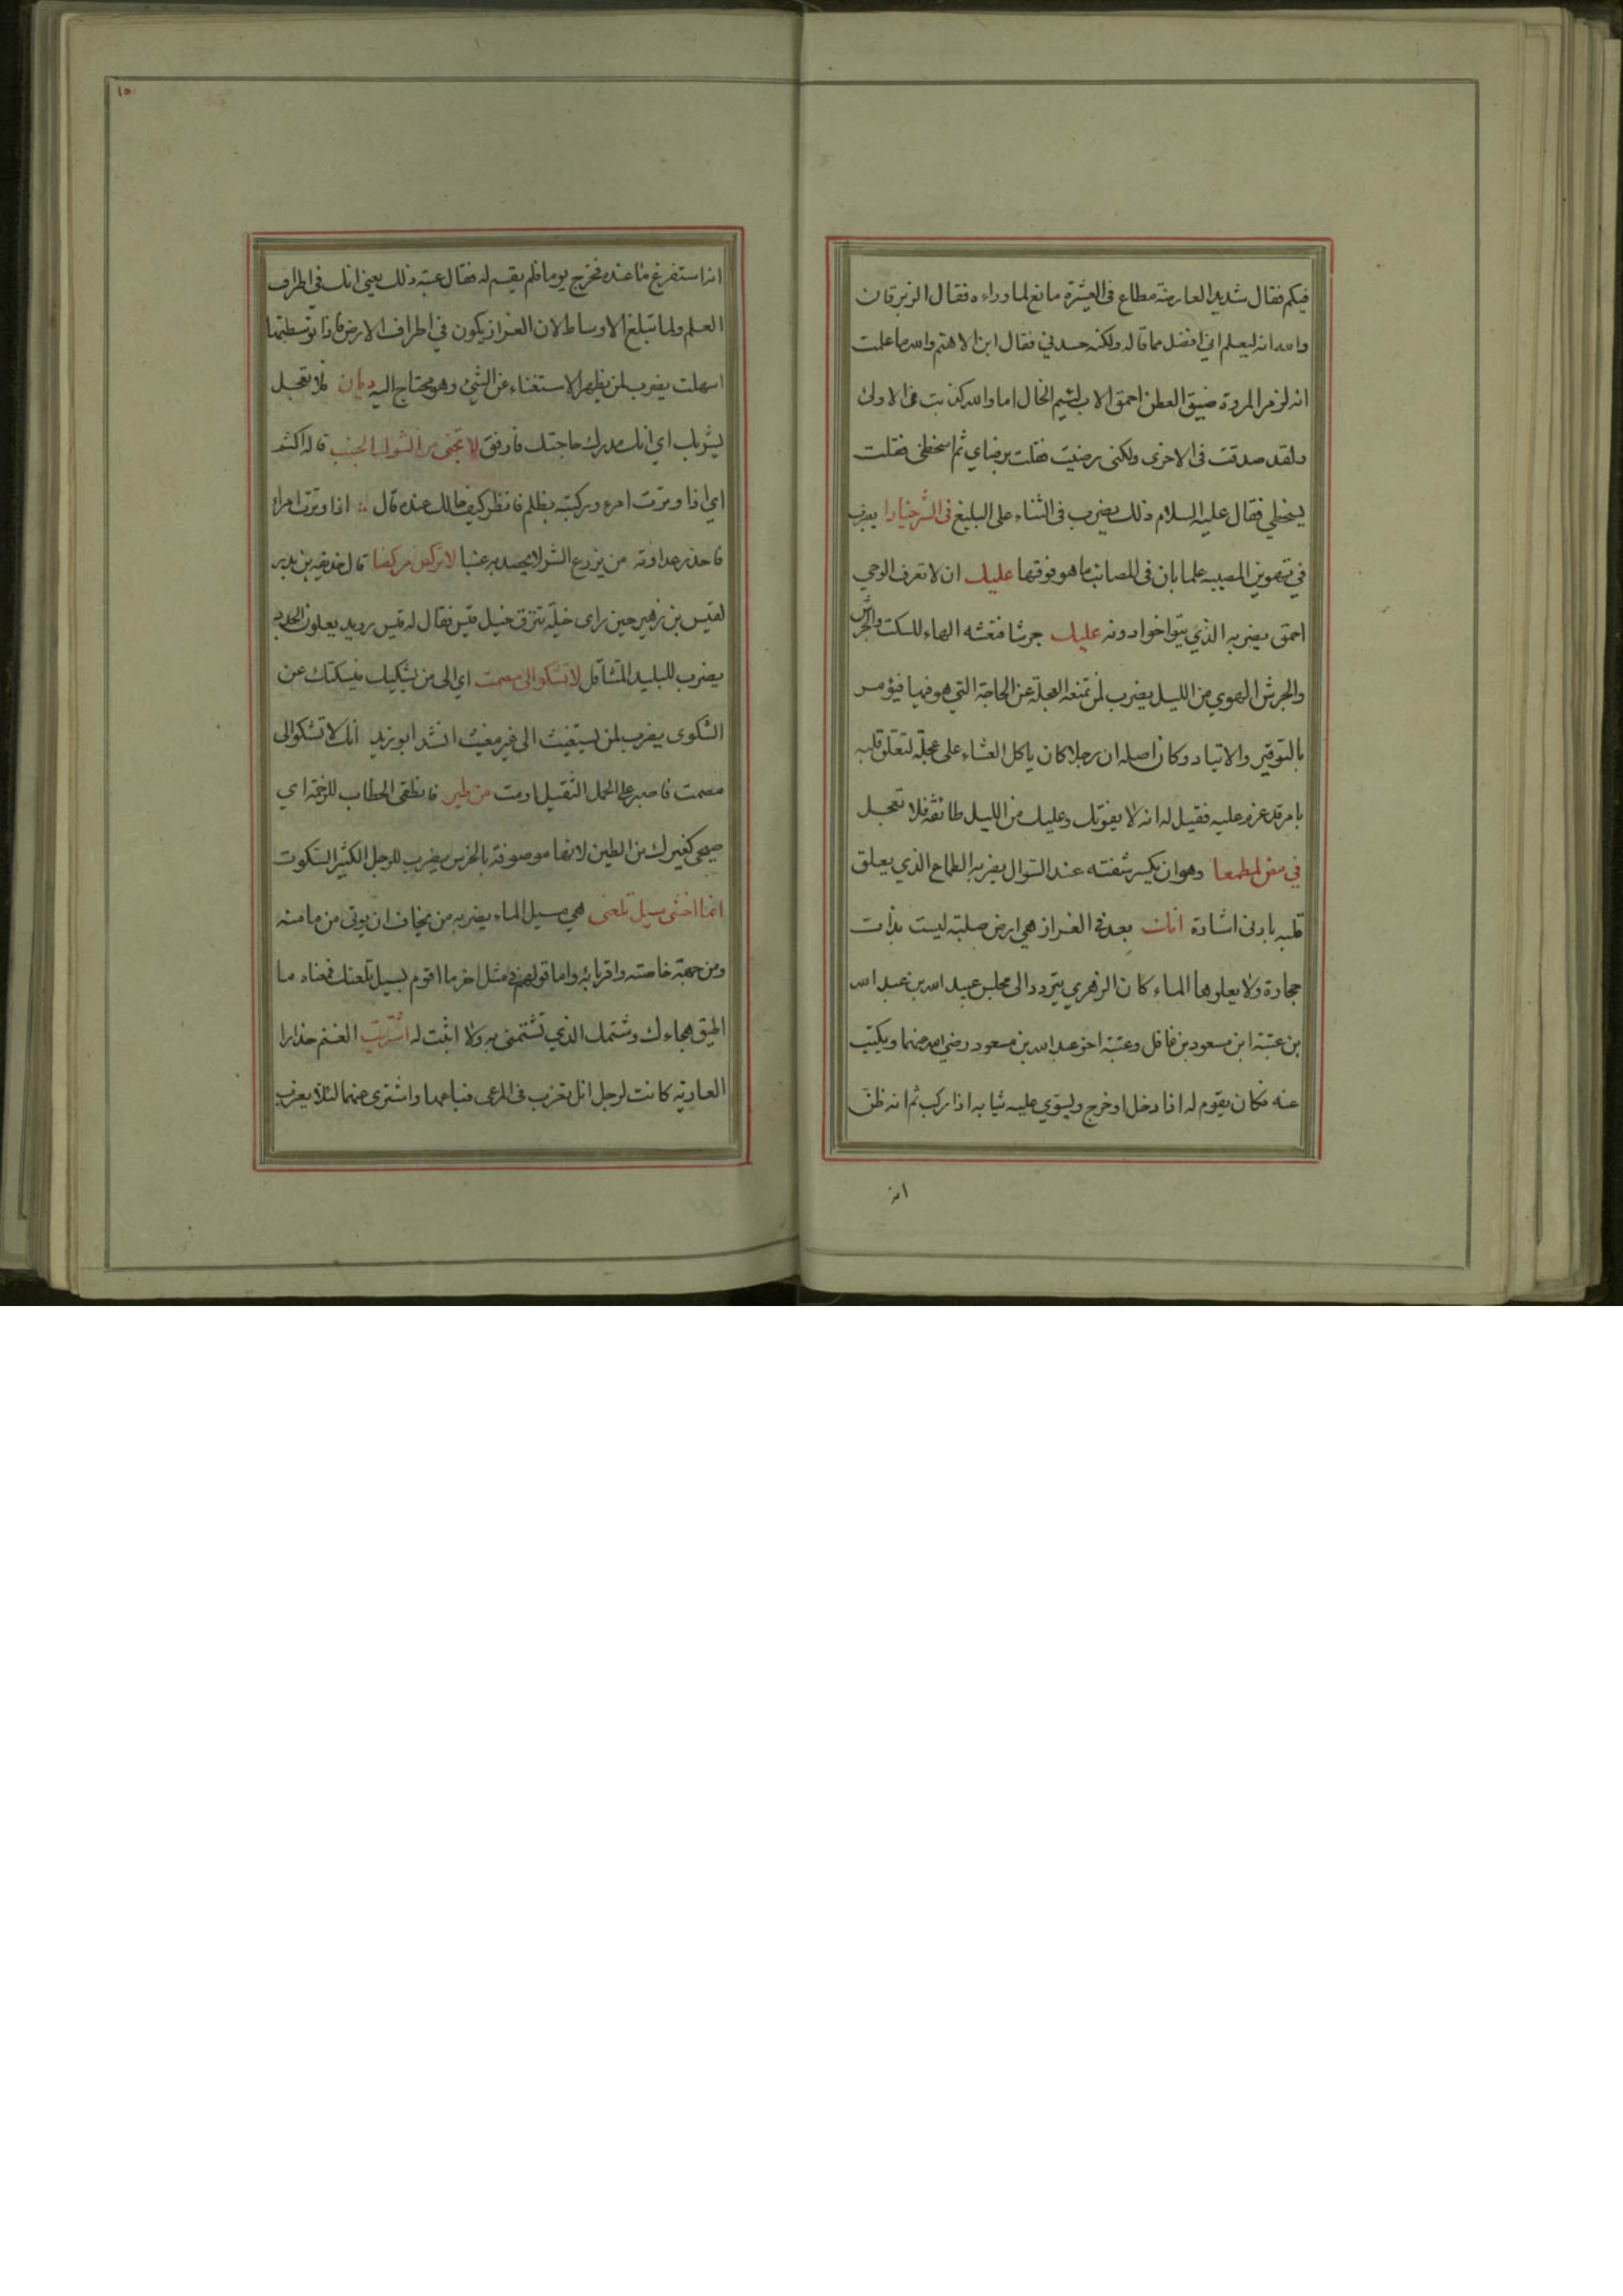 فيكم فقال شديد العارضة مطاع فى العشيرة مانع لما وراءه فقال الزبرقان
والله انه ليعلم انى افضل مما قاله ولكنه حسدنى فقال ابن الاهتم والله ما علمت
انه لزمر المروة ضيق العطن احمق الاب لئيم الخال اما والله كذبت فى الاولى
ولقد صدقت فى الاخرى ولكنى رضيت فقلت برضاي ثم اسخطنى فقلت
بسخطي فقال عليه السلام ذلك يضرب فى الثناء على البليغ فى الشر خيارا يضرب
في تهوين المصيبه علما بان فى المصائب ما هو فوقها عليك ان لا تعرف الوحي
احمق يضرب به الذي يتواخوا دونه عليك جرشا فتعشه الهاء للسكت والجرش
والجرش الهوي من الليل يضرب لمن تمنعه العجلة عن الحاجة التي هو فيها فيؤمر
بالتوقير والاتياد وكان اصله ان رجلا كان ياكل العشاء على عجلة لتعلق قلبه
بامر قد عزم عليه فقيل له انه لا يفوتك وعليك من الليل طائفة فلا تعجل
في مض لمطمعا وهو ان يكسر شفته عند السوال يضرب به الطماع الذي يعلق
قلبه بادنى اشارة انك بعد فى العزاز هي ارض صلبة ليست بذات
حجارة ولا يعلوها الماء كان الزهري يتردد الى مجلس عبيد الله بن عبد الله
بن عتبة ابن مسعود بن غافل وعتبة اخو عبد الله بن مسعود رضي الله عنهما ويكتب
عنه فكان يقوم له اذا دخل او خرج ويسوي عليه ثيابه اذا ركب ثم انه ظن
انه
١٥
انه استفرغ ما عنده فخرج يوما فلم يقم له فقال عتبة ذلك يعني انك في اطراف
العلم ولما تبلغ الاوساط لان العزاز يكون في اطراف الارض فاذا توسطتها
اسهلت يضرب لمن يظهر الاستغناء عن الشئ وهو محتاج اليه فلا تعجل
بشربك اي انك مدرك حاجتك فارفق لا تجنى من الشوك العنب قاله اكثم
اي اذا وترت امرء وركبته بظلم فانظر كيف حالك عنده قال اذا وترت امرأ
فاحذر عداوته من يزرع الشوك لا يحصد به عنبا لا تركض مركضا قال حذيفه بن بدر
لقيس بن زهير حين راى خيله تنزق خيل قيس فقال له قيس رويد يعلون الجدد
يضرب للبليد المتثاقل لا تشكو الى مصمت اي الى من يشكيك فيسكتك عن
الشكوى يضرب لمن يستغيث الى غير مغيث انشد ابو زيد انك لا تشكو الى
مصمت فاصبر على الحمل الثقيل او مت من طير فانطقى الخطاب للرخمة اي
صيحي كغيرك من الطير لانها موصوفة بالخرس يضرب للرجل الكثير السكوت
انما اخشى سيل تلعتى هي مسيل الماء يضرب به من يخاف ان يوتى من مامنه
ومن جهة خاصته واقربائه واما قولهم فى مثل اخر ما اقوم بسيل تلعتك فمعناه ما
اطيق هجاءك وشتمك الذي تشتمنى به ولا اثبت له اشتريت الغنم حذارا
العاديه كانت لرجل ابل تعزب فى المرعى فباعها واشترى غنما لئلا يعزب